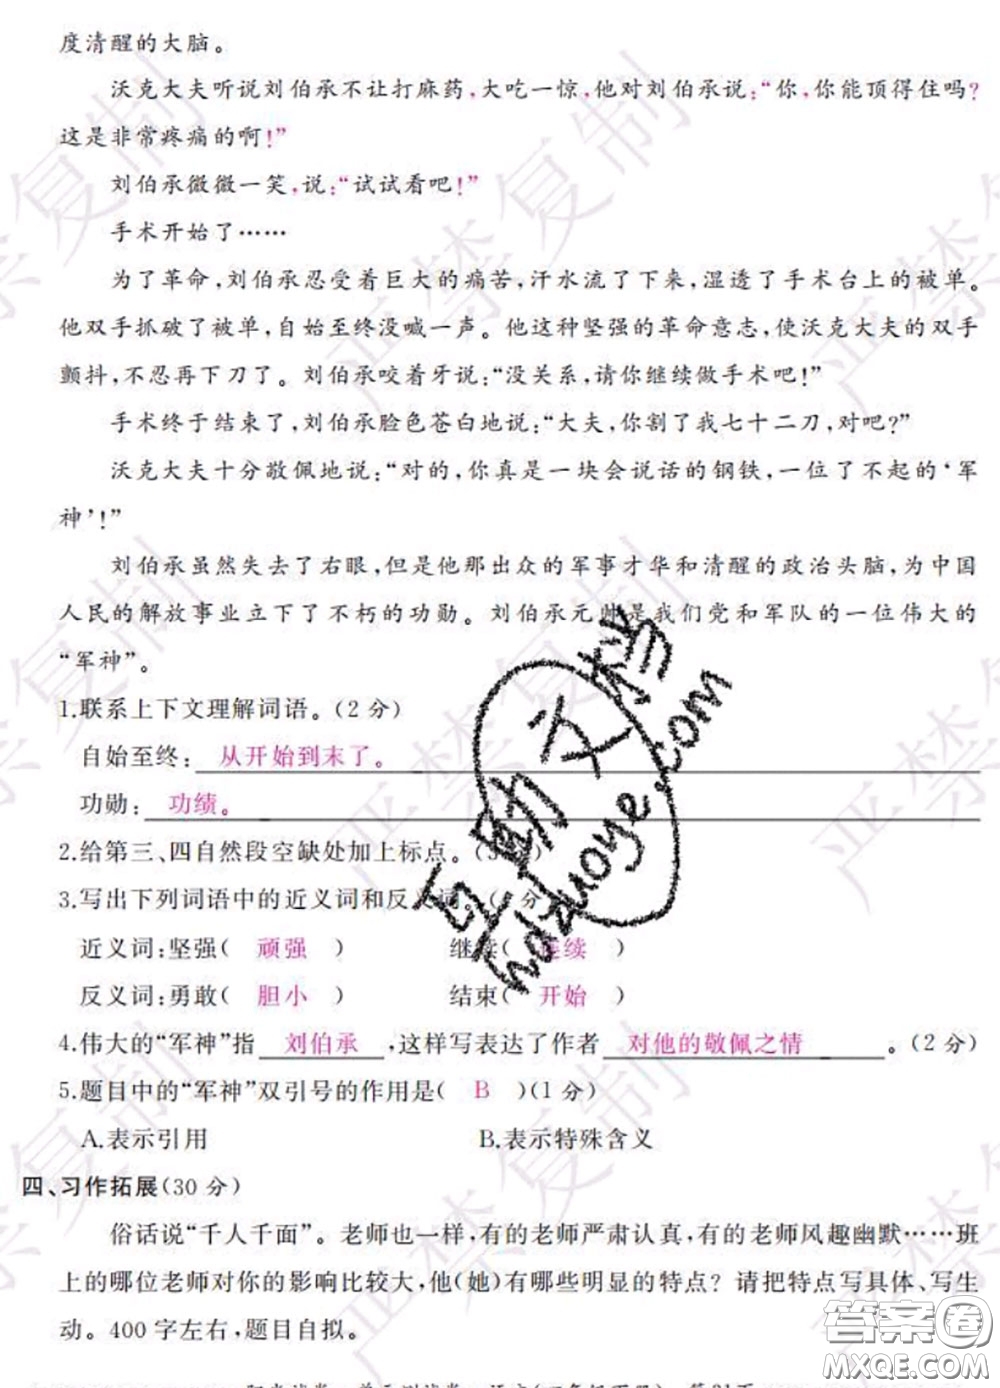 度清醒的大脑。
沃克大夫听说刘伯承不让打麻药,大吃一惊,他对刘伯承说:“你,你能顶得住吗?
这是非常疼痛的啊!”
刘伯承微微一笑,说:“试试看吧!”
手术开始了……
为了革命,刘伯承忍受着巨大的痛苦,汗水流了下来,湿透了手术台上的被单。
他双手抓破了被单,自始至终没喊一声。他这种坚强的革命意志,使沃克大夫的双手
颤抖,不忍再下刀了。刘伯承咬着牙说:“没关系,请你继续做手术吧!”
手术终于结束了,刘伯承脸色苍白地说:“大夫,你割了我七十二刀,对吧?”
沃克大夫十分敬佩地说:“对的,你真是一块会说话的钢铁,一位了不起的‘军
神’!”
刘伯承虽然失去了右眼,但是他那出众的军事才华和清醒的政治头脑,为中国
人民的解放事业立下了不朽的功勋。刘伯承元帅是我们党和军队的一位伟大的
“军神”。
1.联系上下文理解词语。(2分)
自始至终: 从开始到末了。
功勋: 功绩。
2.给第三、四自然段空缺处加上标点。( 分)
3.写出下列词语中的近义词和反义词。( 分)
近义词:坚强( 顽强 ) 继续( 连续 )
反义词:勇敢( 胆小 ) 结束( 开始 )
4.伟大的“军神”指 刘伯承 ,这样写表达了作者 对他的敬佩之情 。(2分)
5.题目中的“军神”双引号的作用是( B )(1分)
A.表示引用 B.表示特殊含义
四、习作拓展(30分)
俗话说“千人千面”。老师也一样,有的老师严肃认真,有的老师风趣幽默……班
上的哪位老师对你的影响比较大,他(她)有哪些明显的特点? 请把特点写具体、写生
动。400字左右,题目自拟。
严禁复制
互助文档
huzuoye.com
答案圈
MXQE.COM